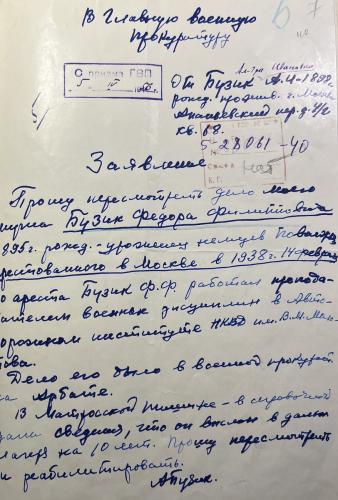 В Главную военную
Прокуратуру
С приема ГВП
От Бузик А.И-1898
рожд. прожив. г. Москва
пер. д. 4/2
кв. 68.
5-28061-40
Заявление
Прошу пересмотреть дело моего
мужа Бузик Федора Филипповича
895г. рожд.-уроженец немцев Поволжья
рестованного в Москве в 1938г. 14 феврал
о ареста Бузик Ф.Ф работал препода-
ателем военных дисциплин в Авто-
орожном институте НКВД им. В.М. Моло-
това.
Дело его было в военной прокурат
на Арбате.
В Матросской тишине - в справочной
дали сведения, что он выслан в дальн
лагеря на 10 лет. Прошу пересмотреть
и реабилитировать.
АБузик.